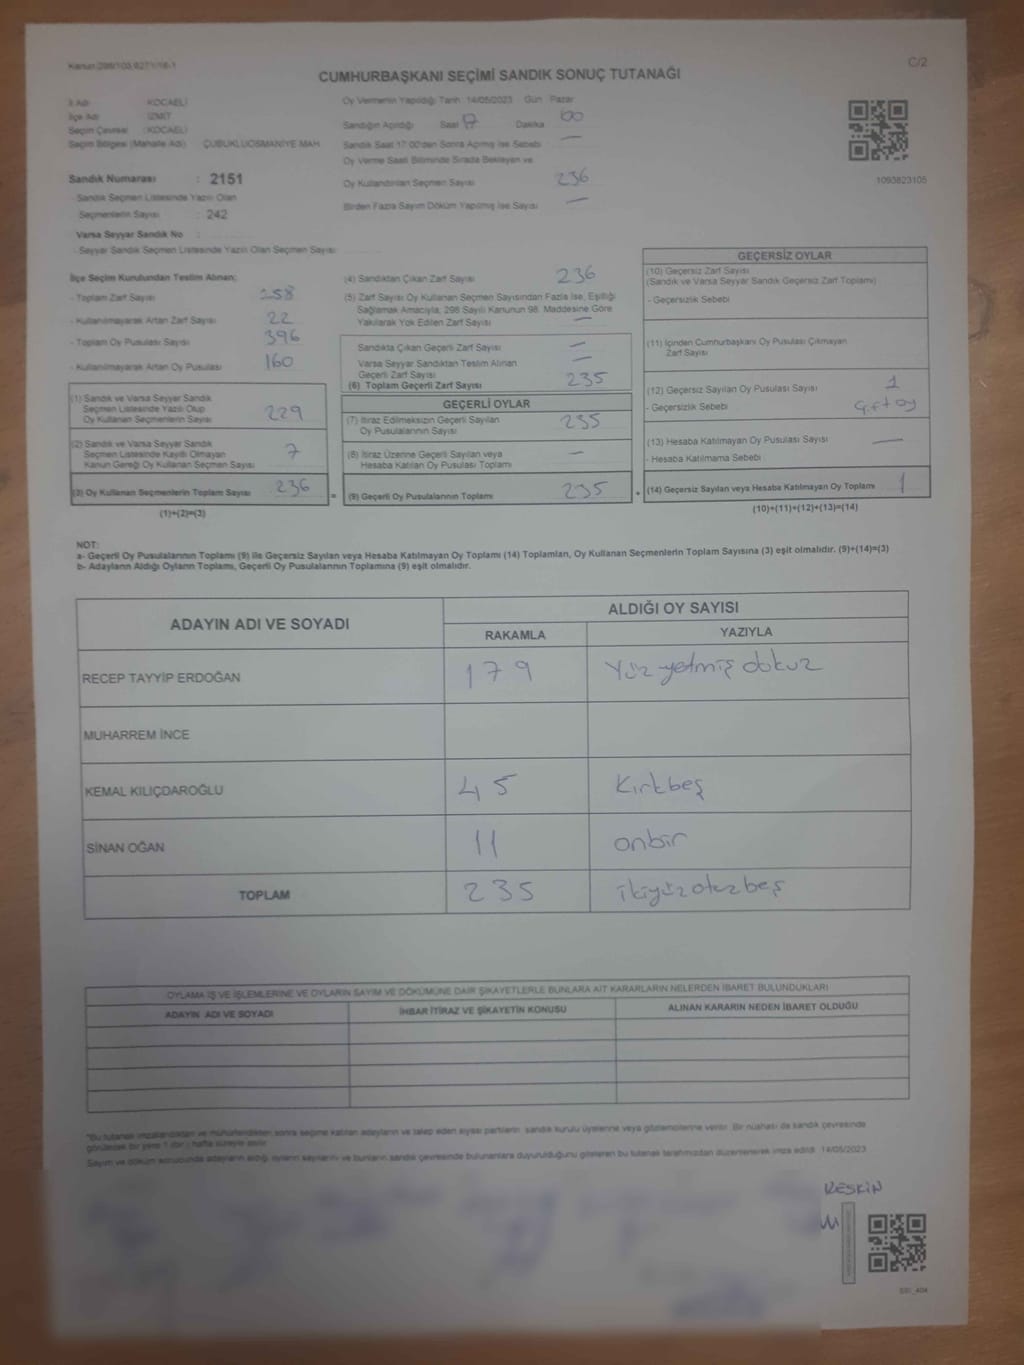 Kanun:298/103,6271/16-1
C/2
CUMHURBAŞKANI SEÇİMİ SANDIK SONUÇ TUTANAĞI
İl Adı : KOCAELİ
İlçe Adı : İZMİT
Seçim Çevresi : KOCAELİ
Seçim Bölgesi (Mahalle Adı) : ÇUBUKLUOSMANİYE MAH.
Sandık Numarası : 2151
- Sandık Seçmen Listesinde Yazılı Olan
Seçmenlerin Sayısı : 242
Varsa Seyyar Sandık No :
- Seyyar Sandık Seçmen Listesinde Yazılı Olan Seçmen Sayısı :
Oy Vermenin Yapıldığı Tarih 14/05/2023 Gün Pazar
Sandığın Açıldığı Saat 17 Dakika 00
Sandık Saat 17:00'den Sonra Açılmış İse Sebebi —
Oy Verme Saati Bitiminde Sırada Bekleyen ve
Oy Kullandırılan Seçmen Sayısı 236
Birden Fazla Sayım Döküm Yapılmış İse Sayısı —
1093823105
İlçe Seçim Kurulundan Teslim Alınan;
- Toplam Zarf Sayısı 258
- Kullanılmayarak Artan Zarf Sayısı 22
- Toplam Oy Pusulası Sayısı 396
- Kullanılmayarak Artan Oy Pusulası 160
(1) Sandık ve Varsa Seyyar Sandık
Seçmen Listesinde Yazılı Olup
Oy Kullanan Seçmenlerin Sayısı 229
(2) Sandık ve Varsa Seyyar Sandık
Seçmen Listesinde Kayıtlı Olmayan
Kanun Gereği Oy Kullanan Seçmen Sayısı 7
(3) Oy Kullanan Seçmenlerin Toplam Sayısı 236
(1)+(2)=(3)
=
(4) Sandıktan Çıkan Zarf Sayısı 236
(5) Zarf Sayısı Oy Kullanan Seçmen Sayısından Fazla İse, Eşitliği
Sağlamak Amacıyla, 298 Sayılı Kanunun 98. Maddesine Göre
Yakılarak Yok Edilen Zarf Sayısı —
Sandıkta Çıkan Geçerli Zarf Sayısı —
Varsa Seyyar Sandıktan Teslim Alınan
Geçerli Zarf Sayısı —
(6) Toplam Geçerli Zarf Sayısı 235
GEÇERLİ OYLAR
(7) İtiraz Edilmeksizin Geçerli Sayılan
Oy Pusulalarının Sayısı 235
(8) İtiraz Üzerine Geçerli Sayılan veya
Hesaba Katılan Oy Pusulası Toplamı —
(9) Geçerli Oy Pusulalarının Toplamı 235
+
GEÇERSİZ OYLAR
(10) Geçersiz Zarf Sayısı
(Sandık ve Varsa Seyyar Sandık Geçersiz Zarf Toplamı)
- Geçersizlik Sebebi
(11) İçinden Cumhurbaşkanı Oy Pusulası Çıkmayan
Zarf Sayısı
(12) Geçersiz Sayılan Oy Pusulası Sayısı 1
- Geçersizlik Sebebi Çift oy
(13) Hesaba Katılmayan Oy Pusulası Sayısı —
- Hesaba Katılmama Sebebi
(14) Geçersiz Sayılan veya Hesaba Katılmayan Oy Toplamı 1
(10)+(11)+(12)+(13)=(14)
NOT:
a- Geçerli Oy Pusulalarının Toplamı (9) ile Geçersiz Sayılan veya Hesaba Katılmayan Oy Toplamı (14) Toplamları, Oy Kullanan Seçmenlerin Toplam Sayısına (3) eşit olmalıdır. (9)+(14)=(3)
b- Adayların Aldığı Oyların Toplamı, Geçerli Oy Pusulalarının Toplamına (9) eşit olmalıdır.
ADAYIN ADI VE SOYADI ALDIĞI OY SAYISI
RAKAMLA YAZIYLA
RECEP TAYYİP ERDOĞAN 179 Yüz yetmiş dokuz
MUHARREM İNCE
KEMAL KILIÇDAROĞLU 45 Kırkbeş
SİNAN OĞAN 11 onbir
TOPLAM 235 ikiyüzotuzbeş
OYLAMA İŞ VE İŞLEMLERİNE VE OYLARIN SAYIM VE DÖKÜMÜNE DAİR ŞİKAYETLERLE BUNLARA AİT KARARLARIN NELERDEN İBARET BULUNDUKLARI
ADAYIN ADI VE SOYADI İHBAR İTİRAZ VE ŞİKAYETİN KONUSU ALINAN KARARIN NEDEN İBARET OLDUĞU
*Bu tutanak imzalandıktan ve mühürlendikten sonra seçime katılan adayların ve talep eden siyasi partilerin sandık kurulu üyelerine veya gözlemcilerine verilir. Bir nüshası da sandık çevresinde
görülebilir bir yere 1 (bir) hafta süreyle asılır.
Sayım ve döküm sonucunda adayların aldığı oyların sayılarını ve bunların sandık çevresinde bulunanlara duyurulduğunu gösteren bu tutanak tarafımızdan düzenlenerek imza edildi. 14/05/2023
KESKİN